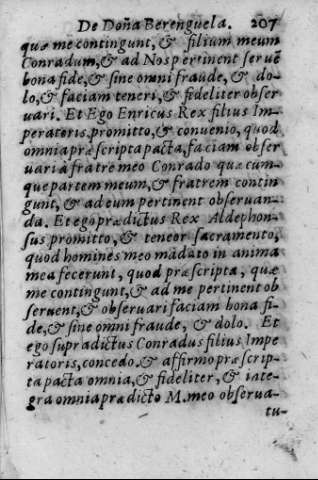 De Doña Berenguela. 207
quæ me contingunt, & filium meum
Conradum, & ad Nos pertinent seruẽ
bona fide, & sine omni fraude, & do-
lo, & faciam teneri, & fideliter obser
uari. Et Ego Enricus Rex filius Im-
peratoris, promitto, & conuenio, quod
omnia præscripta pacta, faciam obser
uari à fratre meo Conrado quæ cum-
que partem meum, & fratrem contin
gunt, & ad eum pertinent obseruan-
da. Et ego prædictus Rex Aldephon-
sus promitto, & teneor sacramento,
quod homines meo mãdato in anima
mea fecerunt, quod præscripta, quæ
me contingunt, & ad me pertinent ob
seruent, & obseruari faciam bona fi-
de, & sine omni fraude, & dolo. Et
ego supradictus Conradus filius Impe
ratoris, concedo, & affirmo præscrip-
ta pacta omnia, & fideliter, & inte-
gra omnia prædicto M. meo obserua-
tu-